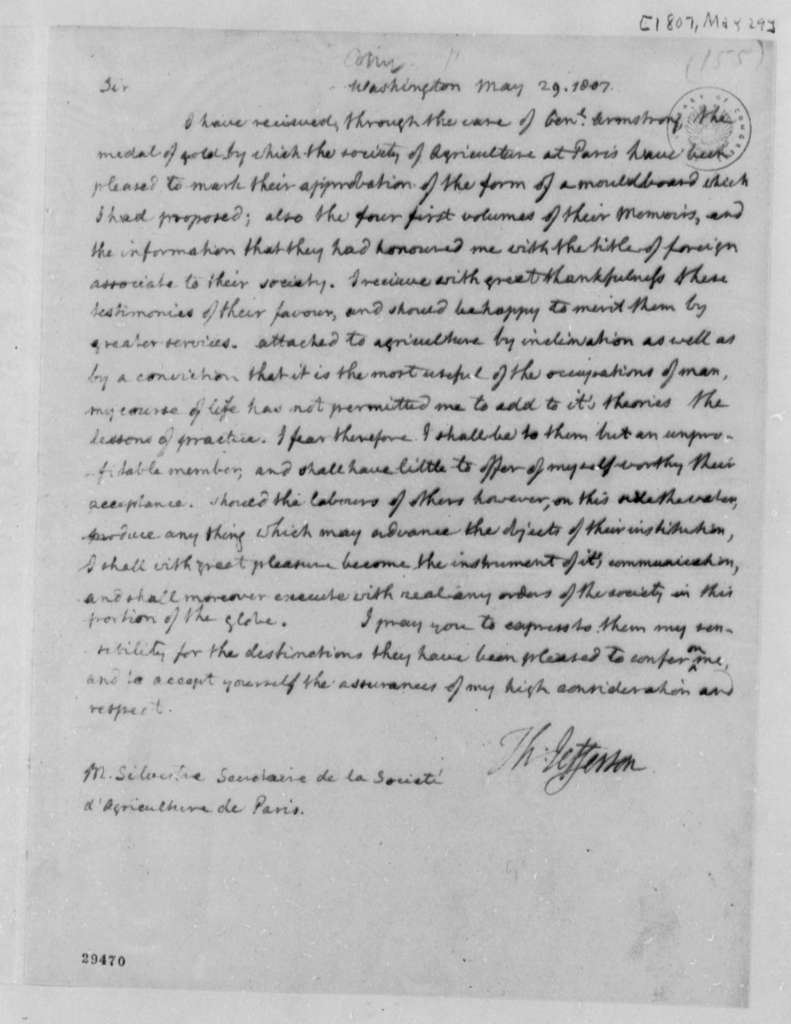 [1807, May 29]
Copy
(155)
Sir
Washington May 29. 1807.
I have recieved, through the care of Genl. Armstrong, the
medal of gold, by which the society of Agriculture at Paris have been
pleased to mark their approbation of the form of a mouldboard which
I had proposed; also the four first volumes of their Memoirs, and
the information that they had honoured me with the title of foreign
associate to their society. I recieve with great thankfulness these
testimonies of their favour, and should be happy to merit them by
greater services. attached to agriculture by inclination as well as
by a conviction that it is the most useful of the occupations of man,
my course of life has not permitted me to add to it's theories the
lessons of practice. I fear therefore I shall be to them but an unpro-
fitable member, and shall have little to offer of myself worthy their
acceptance. should the labours of others however, on this side the water,
produce any thing which may advance the objects of their institution,
I shall with great pleasure become the instrument of it's communication,
and shall moreover execute with zeal any orders of the society in this
portion of the globe. I pray you to express to them my sen-
sibility for the distinctions they have been pleased to confer on me,
and to accept yourself the assurances of my high consideration and
respect.
Th: Jefferson
M. Silvestre Secretaire de la Societé
d'Agriculture de Paris.
29470